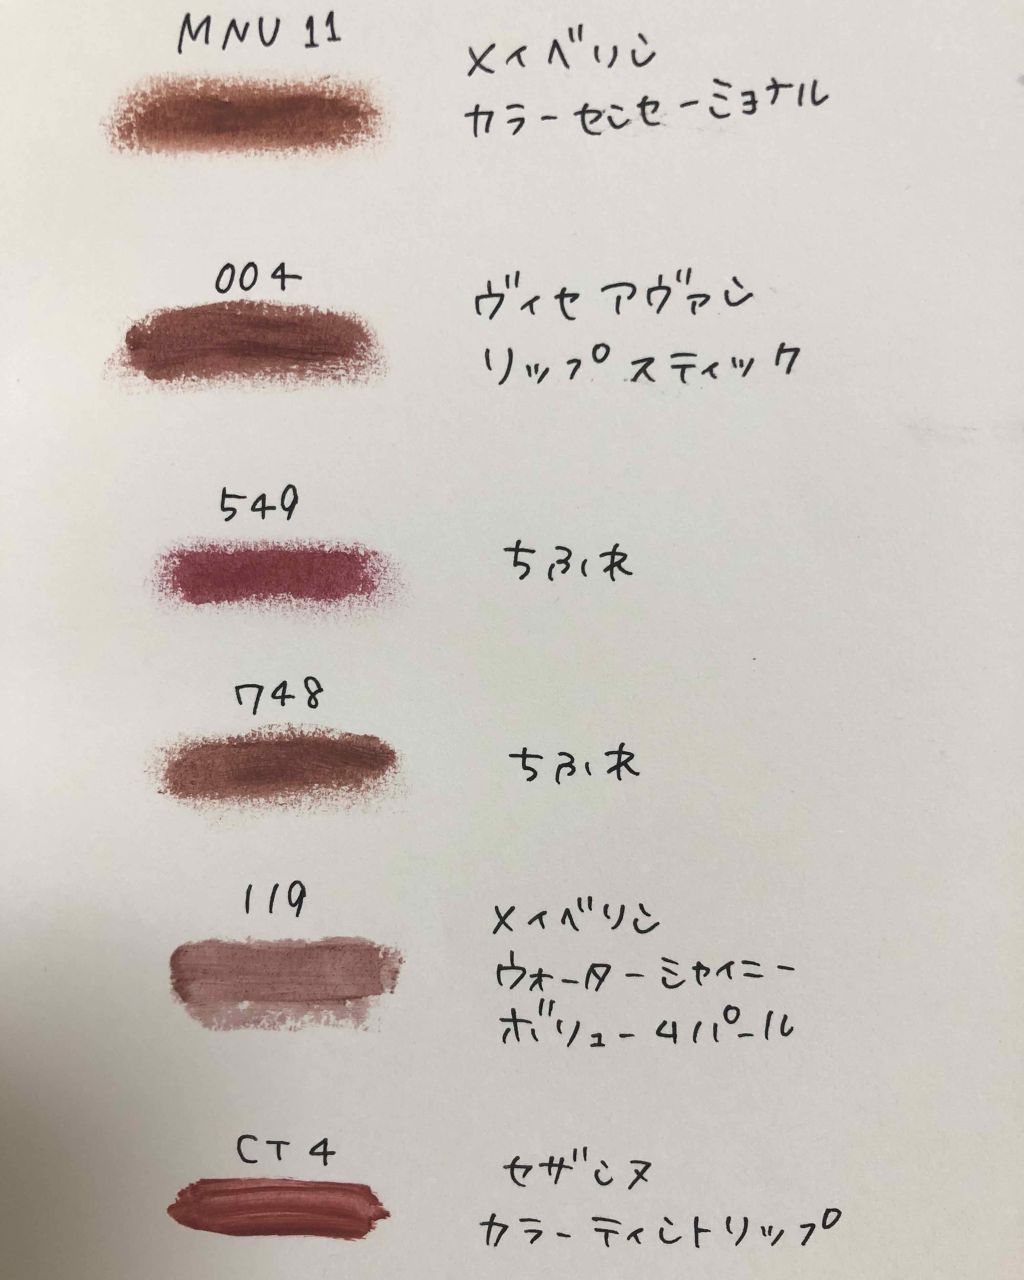 MNU 11
メイベリン
カラーセンセーショナル
004
ヴィセ アヴァン
リップスティック
549
ちふれ
748
ちふれ
119
メイベリン
ウォーターシャイニー
ボリュームパール
CT4
セザンヌ
カラーティントリップ